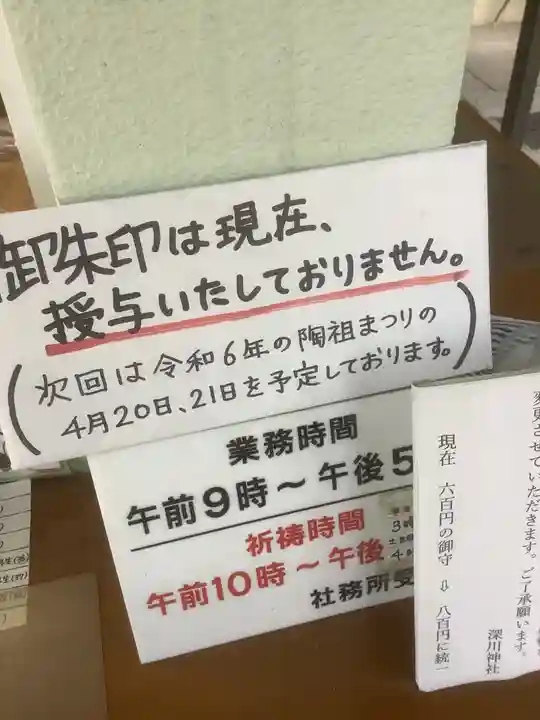 御朱印は現在、
授与いたしておりません。
(次回は令和6年の陶祖まつりの
4月20日、21日を予定しております。)
業務時間
午前9時～午後5
祈祷時間
午前10時～午後
3時
4時
社務所受
変更させていただきます。ご了承願います。
現在 六百円の御守 ⇨ 八百円に統一
深川神社